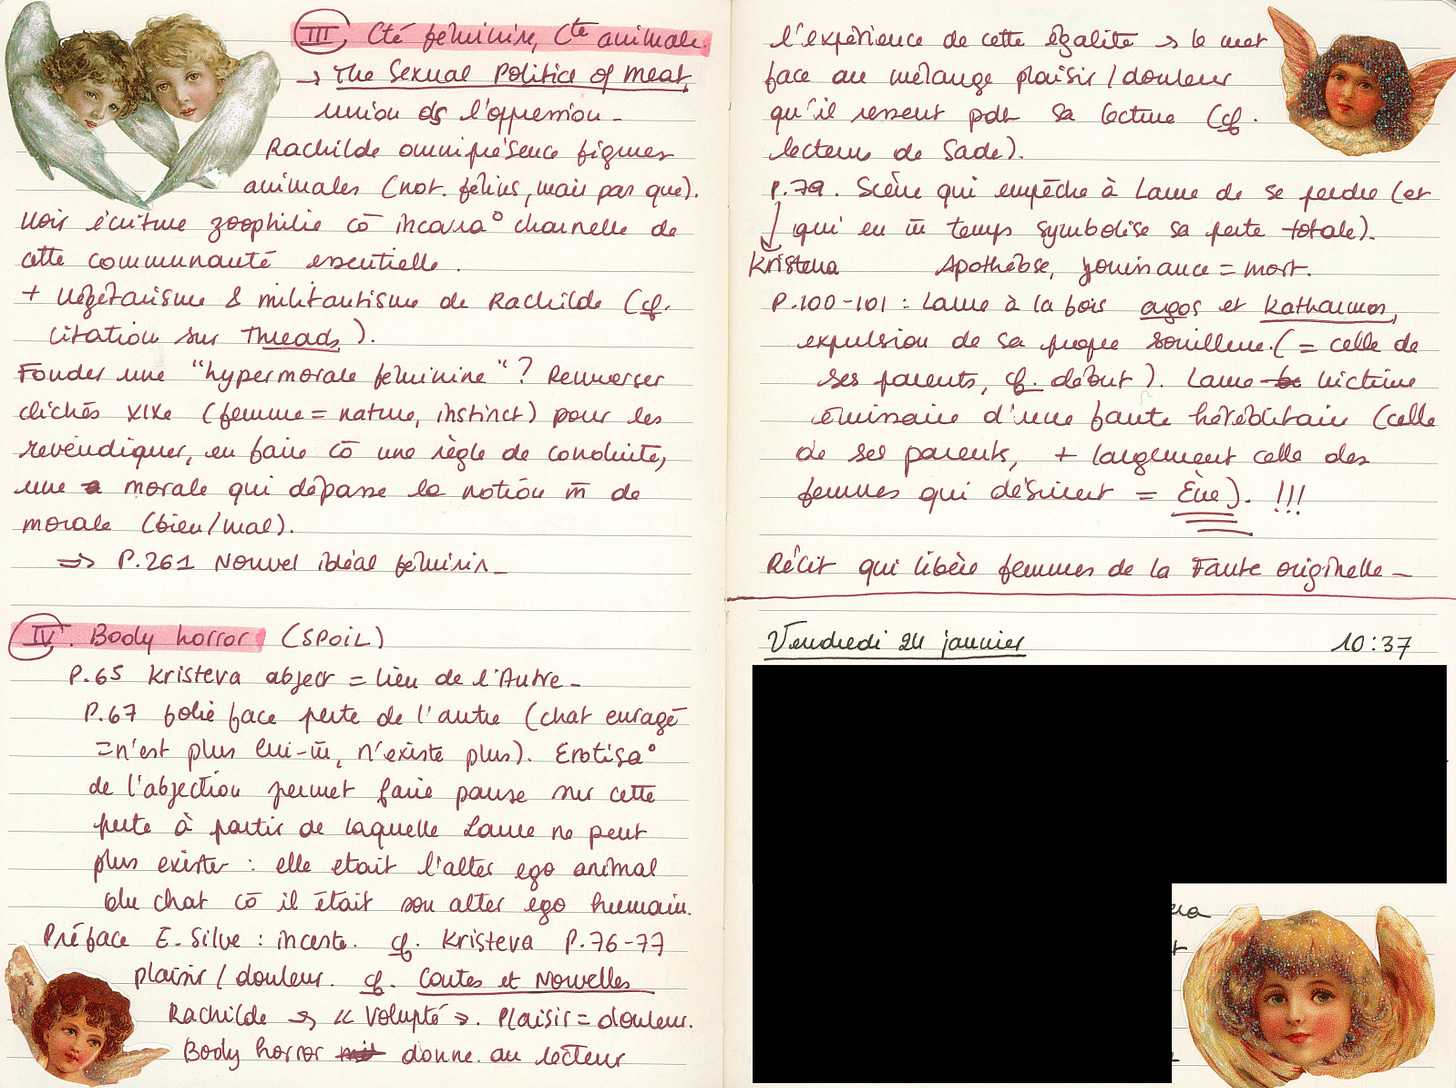 III Cté féminine, Cté animale.
→ The Sexual Politics of Meat,
union ds l'oppression -
Rachilde omniprésence figures
animales (not. félins, mais pas que).
Voir écriture zoophilie cō incarna° charnelle de
cette communauté essentielle.
+ végétarisme & militantisme de Rachilde (cf.
citation sur Threads).
Fonder une "hypermorale féminine"? Renverser
clichés XIXe (femme = nature, instinct) pour les
revendiquer, en faire cō une règle de conduite,
une morale qui dépasse la notion m̄ de
morale (bien/mal).
⇒ P.261 Nouvel idéal féminin -
IV. Body horror (SPOIL)
P.65 Kristeva abject = lieu de l'Autre -
P.67 folie face perte de l'autre (chat enragé
= n'est plus lui-m̄, n'existe plus). Erotisa°
de l'abjection permet faire pause sur cette
perte à partir de laquelle Laure ne peut
plus exister : elle était l'alter ego animal
du chat cō il était son alter ego humain.
Préface E. Silve : inceste. cf. Kristeva P.76-77
plaisir / douleur. cf. Contes et Nouvelles
Rachilde → « Volupté ». Plaisir = douleur.
Body horror donne au lecteur
l'expérience de cette égalité → le met
face au mélange plaisir / douleur
qu'il ressent pdt sa lecture (cf.
lecteurs de Sade).
P.79. Scène qui empêche à Laure de se perdre (et
qui en m̄ temps symbolise sa perte totale).
Kristeva Apothéose, jouissance = mort.
P.100-101 : Laure à la fois agos et katharmos,
expulsion de sa propre souillure. (= celle de
ses parents, cf. début). Laure victime
émissaire d'une faute héréditaire (celle
de ses parents, + largement celle des
femmes qui désirent = Ève). !!!
Récit qui libère femmes de la Faute originelle -
Vendredi 24 janvier 10:37